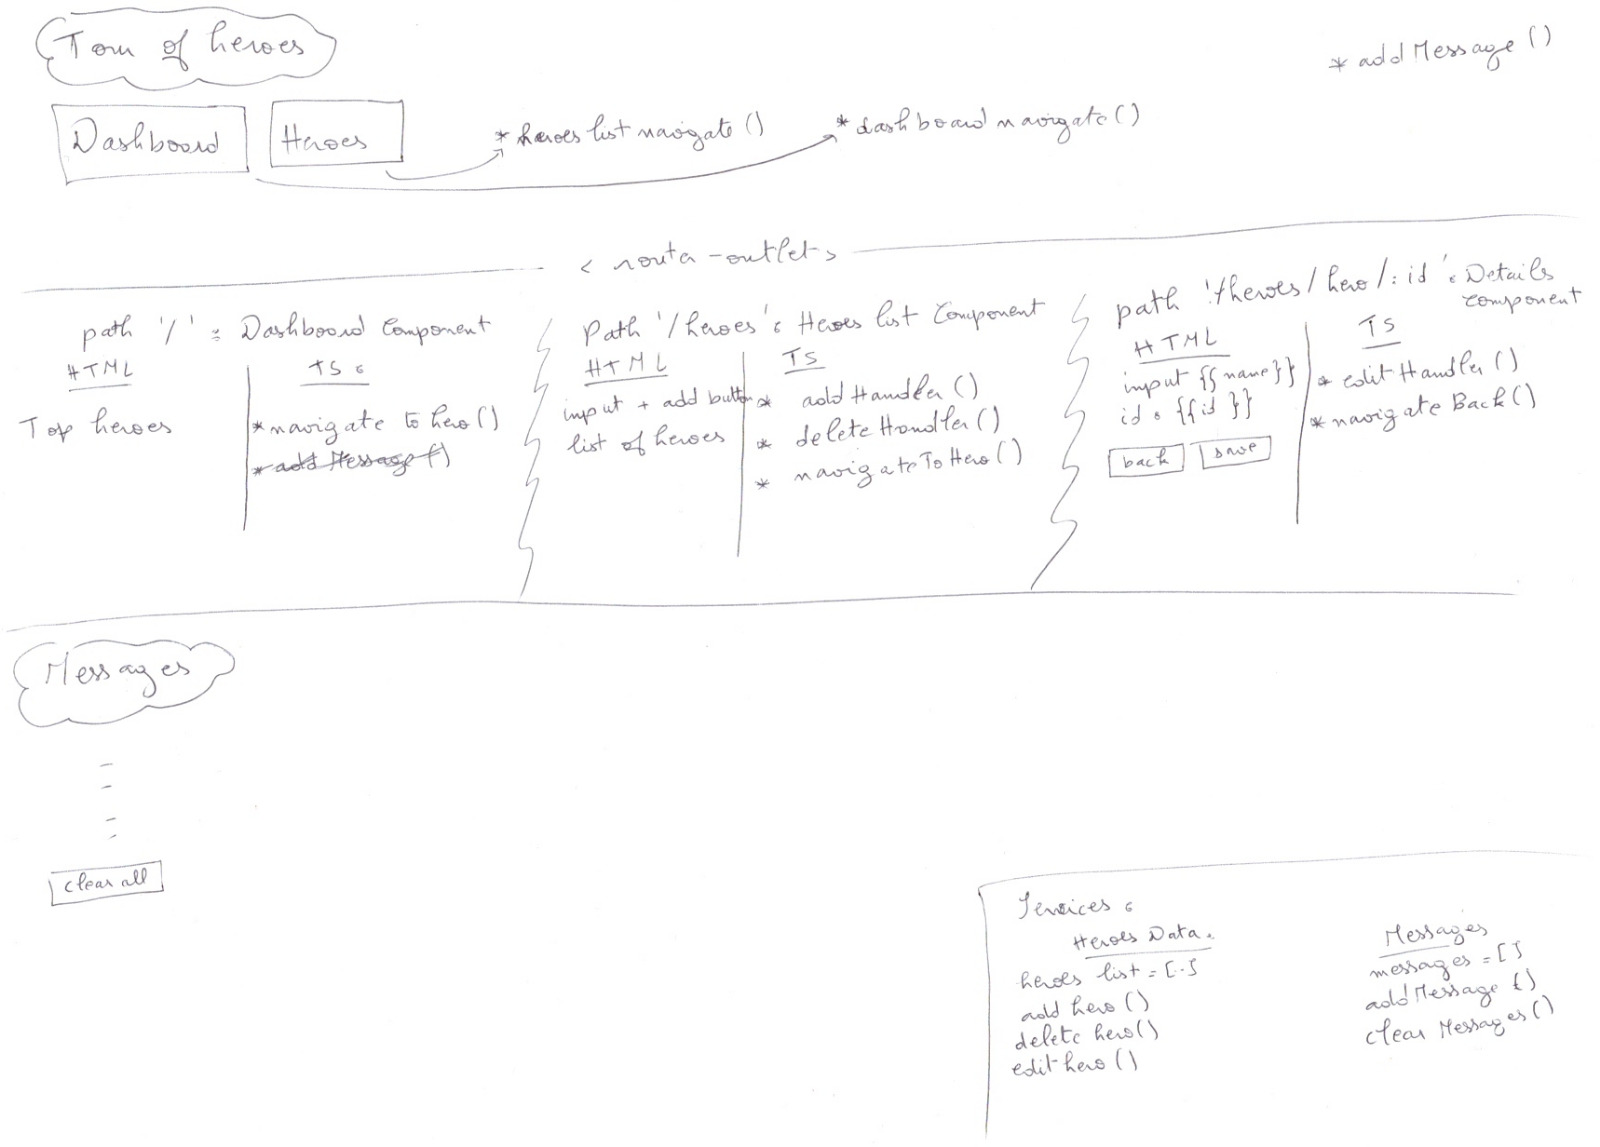 Tour of heroes
* addMessage()
Dashboard
Heroes
* heroes list navigate()
* dashboard navigate()
< router-outlet>
path '/' : Dashboard Component
HTML
TS :
Top heroes
* navigate to hero()
* add Message()
Path '/heroes' : Heroes list Component
HTML
TS
input + add button
list of heroes
* addHandler()
* deleteHandler()
* navigateToHero()
path '/heroes/hero/:id' : Details
Component
HTML
TS
input {{name}}
id : {{id}}
back
save
* editHandler()
* navigateBack()
Messages
-
-
-
-
clear all
Services :
Heroes Data.
heroes list = [..]
add hero()
delete hero()
edit hero()
Messages
messages = []
addMessage()
clear Messages()